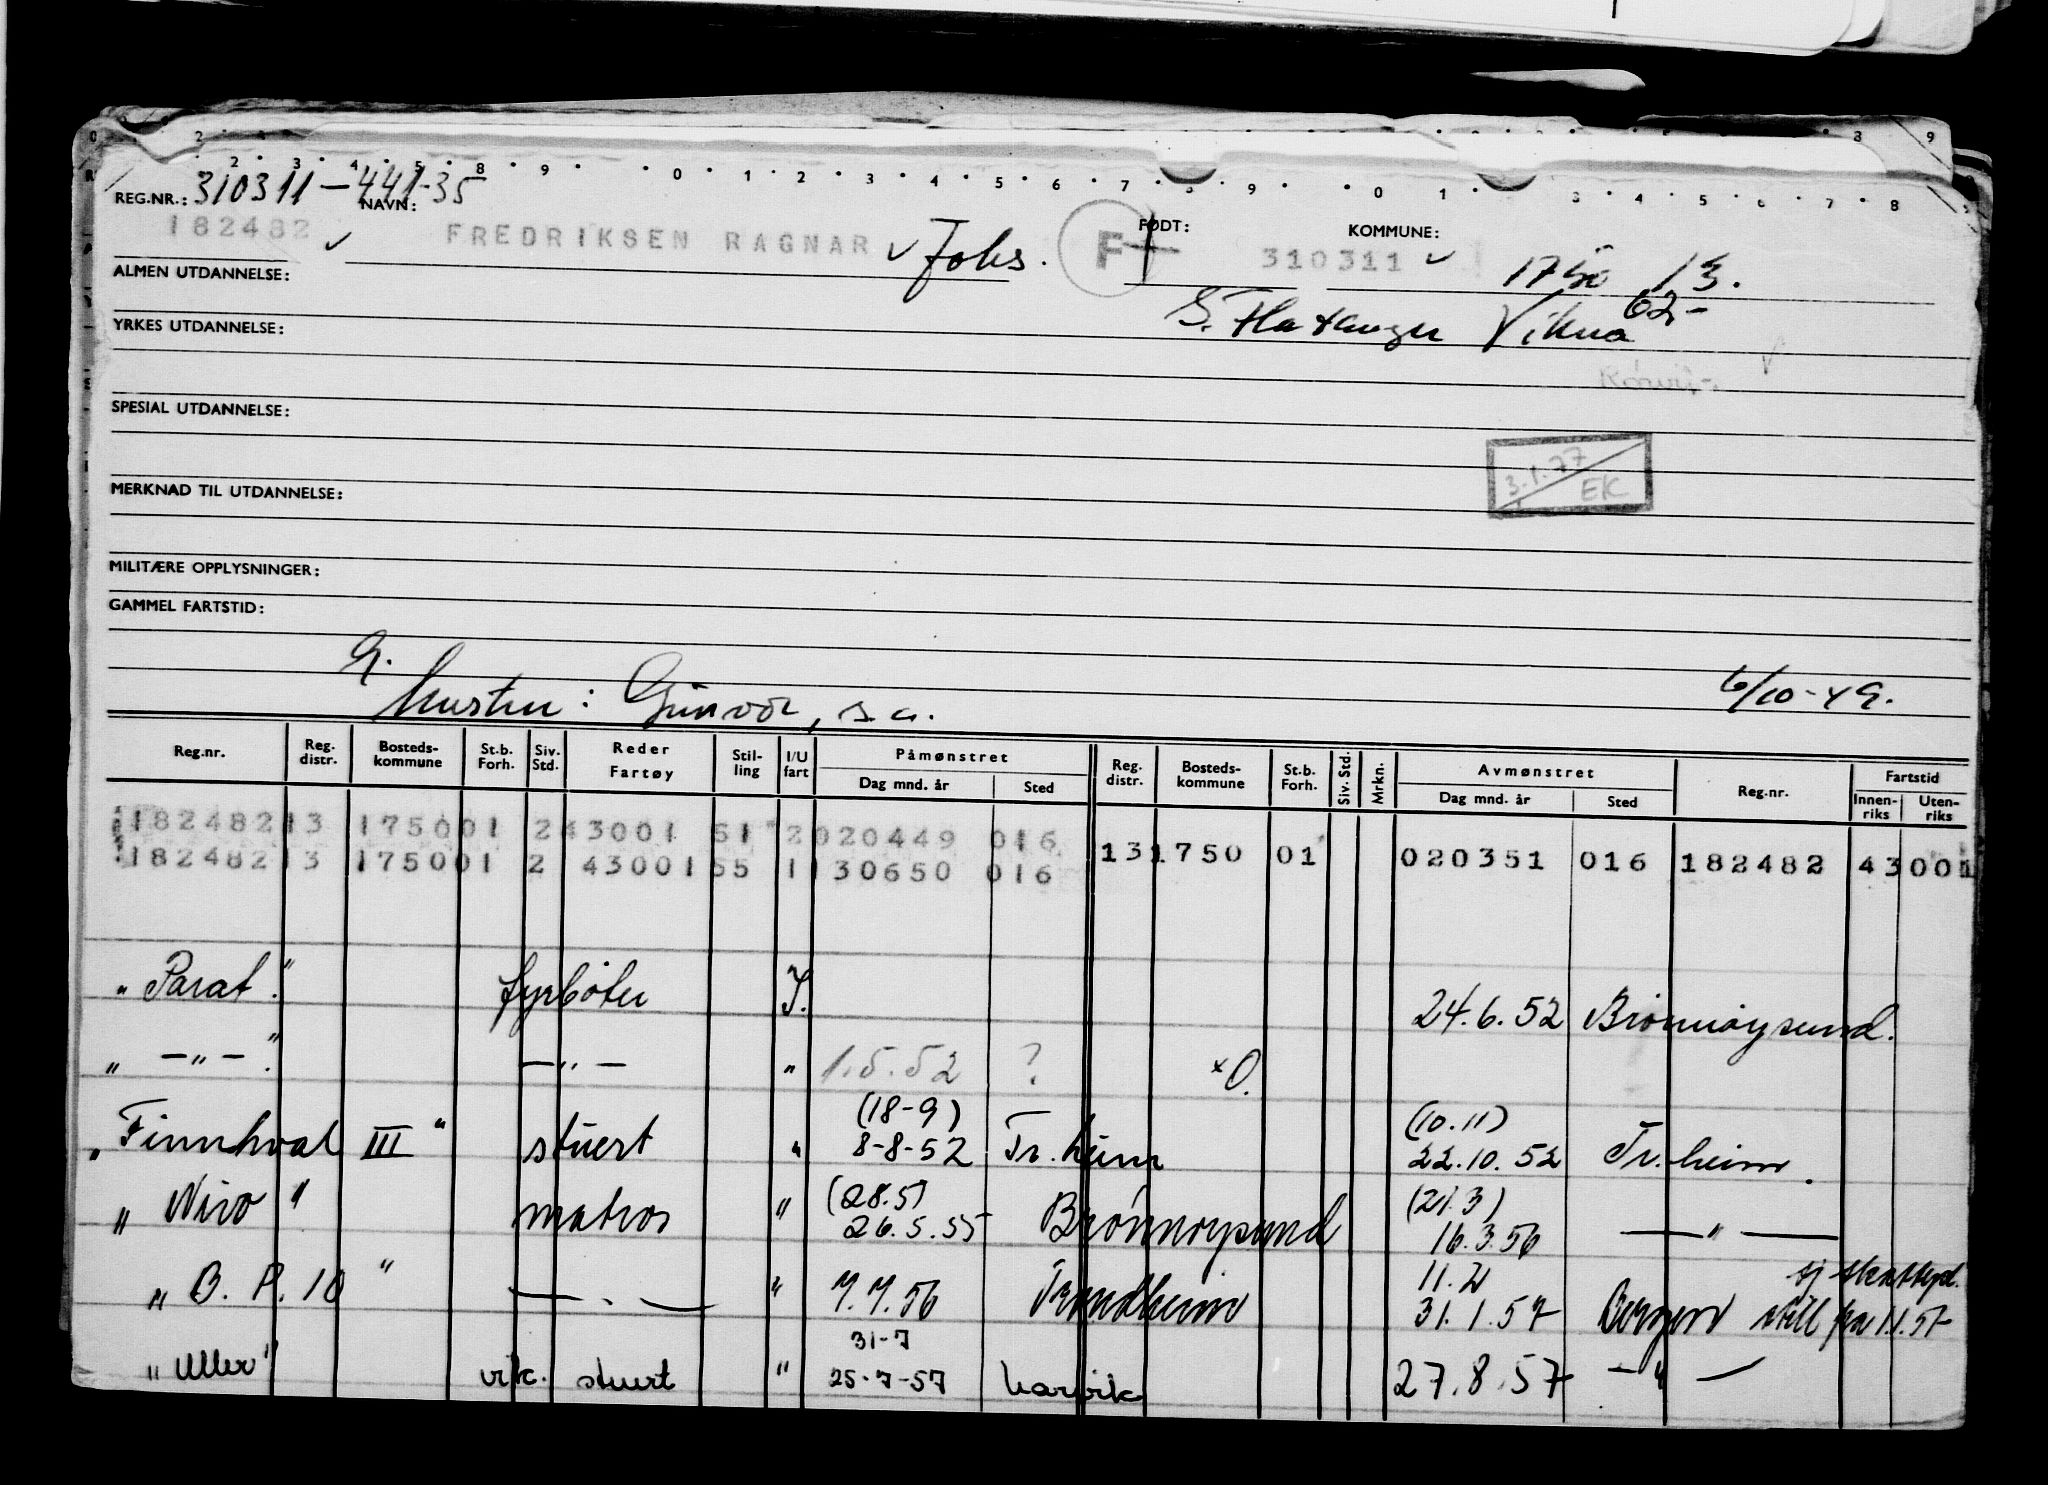 REG.NR.: 310311-441-35 NAVN: FØDT: KOMMUNE:
182482 ✓ FREDRIKSEN RAGNAR ✓ Johs. F 310311 ✓ 1750 13.
ALMEN UTDANNELSE:
S. Flatanger Vikna 62-
YRKES UTDANNELSE:
Rørvik
SPESIAL UTDANNELSE:
3.1.77 EK
MERKNAD TIL UTDANNELSE:
MILITÆRE OPPLYSNINGER:
GAMMEL FARTSTID:
G.
hustru: Gunvor, s.a. 6/10-49.
Reg.nr. Reg. distr. Bosteds-kommune St.b. Forh. Siv. Std. Reder Fartøy Stil-ling I/U fart Påmønstret Dag mnd. år Sted Reg. distr. Bosteds-kommune St.b. Forh. Siv. Std. Mrkn. Avmønstret Dag mnd. år Sted Reg.nr. Fartstid Innen-riks Uten-riks
182482 13 1750 01 2 43001 51 2 020449 016
182482 13 1750 01 2 43001 55 1 130650 016 13 1750 01 020351 016 182482 43001
"Parat." fyrbøter I. 24.6.52 Brønnøysund.
" -"- ." -"- " 1.5.52 ? *O.
(18-9) (10.11)
"Finnhval III" stuert " 8-8-52 Tr.heim 22.10.52 Tr.heim.
(28.5) (21.3)
"Niro" matros " 26.5.55 Brønnøysund 16.3.56 -"-
11.2 sj skattepl.
"B.P. 10" -"- " 7.7.56 Trondheim 31.1.57 Bergen still fra 1.1.57
31-7
"Uller" vik. stuert " 25-7-57 Narvik 27.8.57 -"-